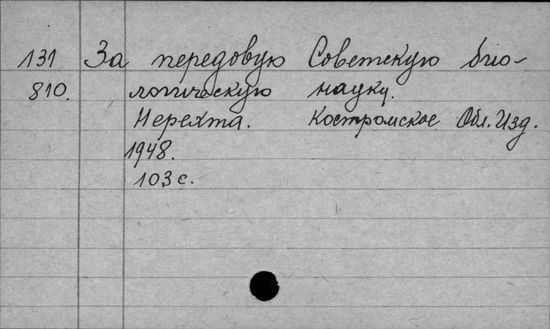 131 За передовую Советскую био-
810. логическую науку.
Нерехта. Костромское Обл. Изд.
1948.
103 с.